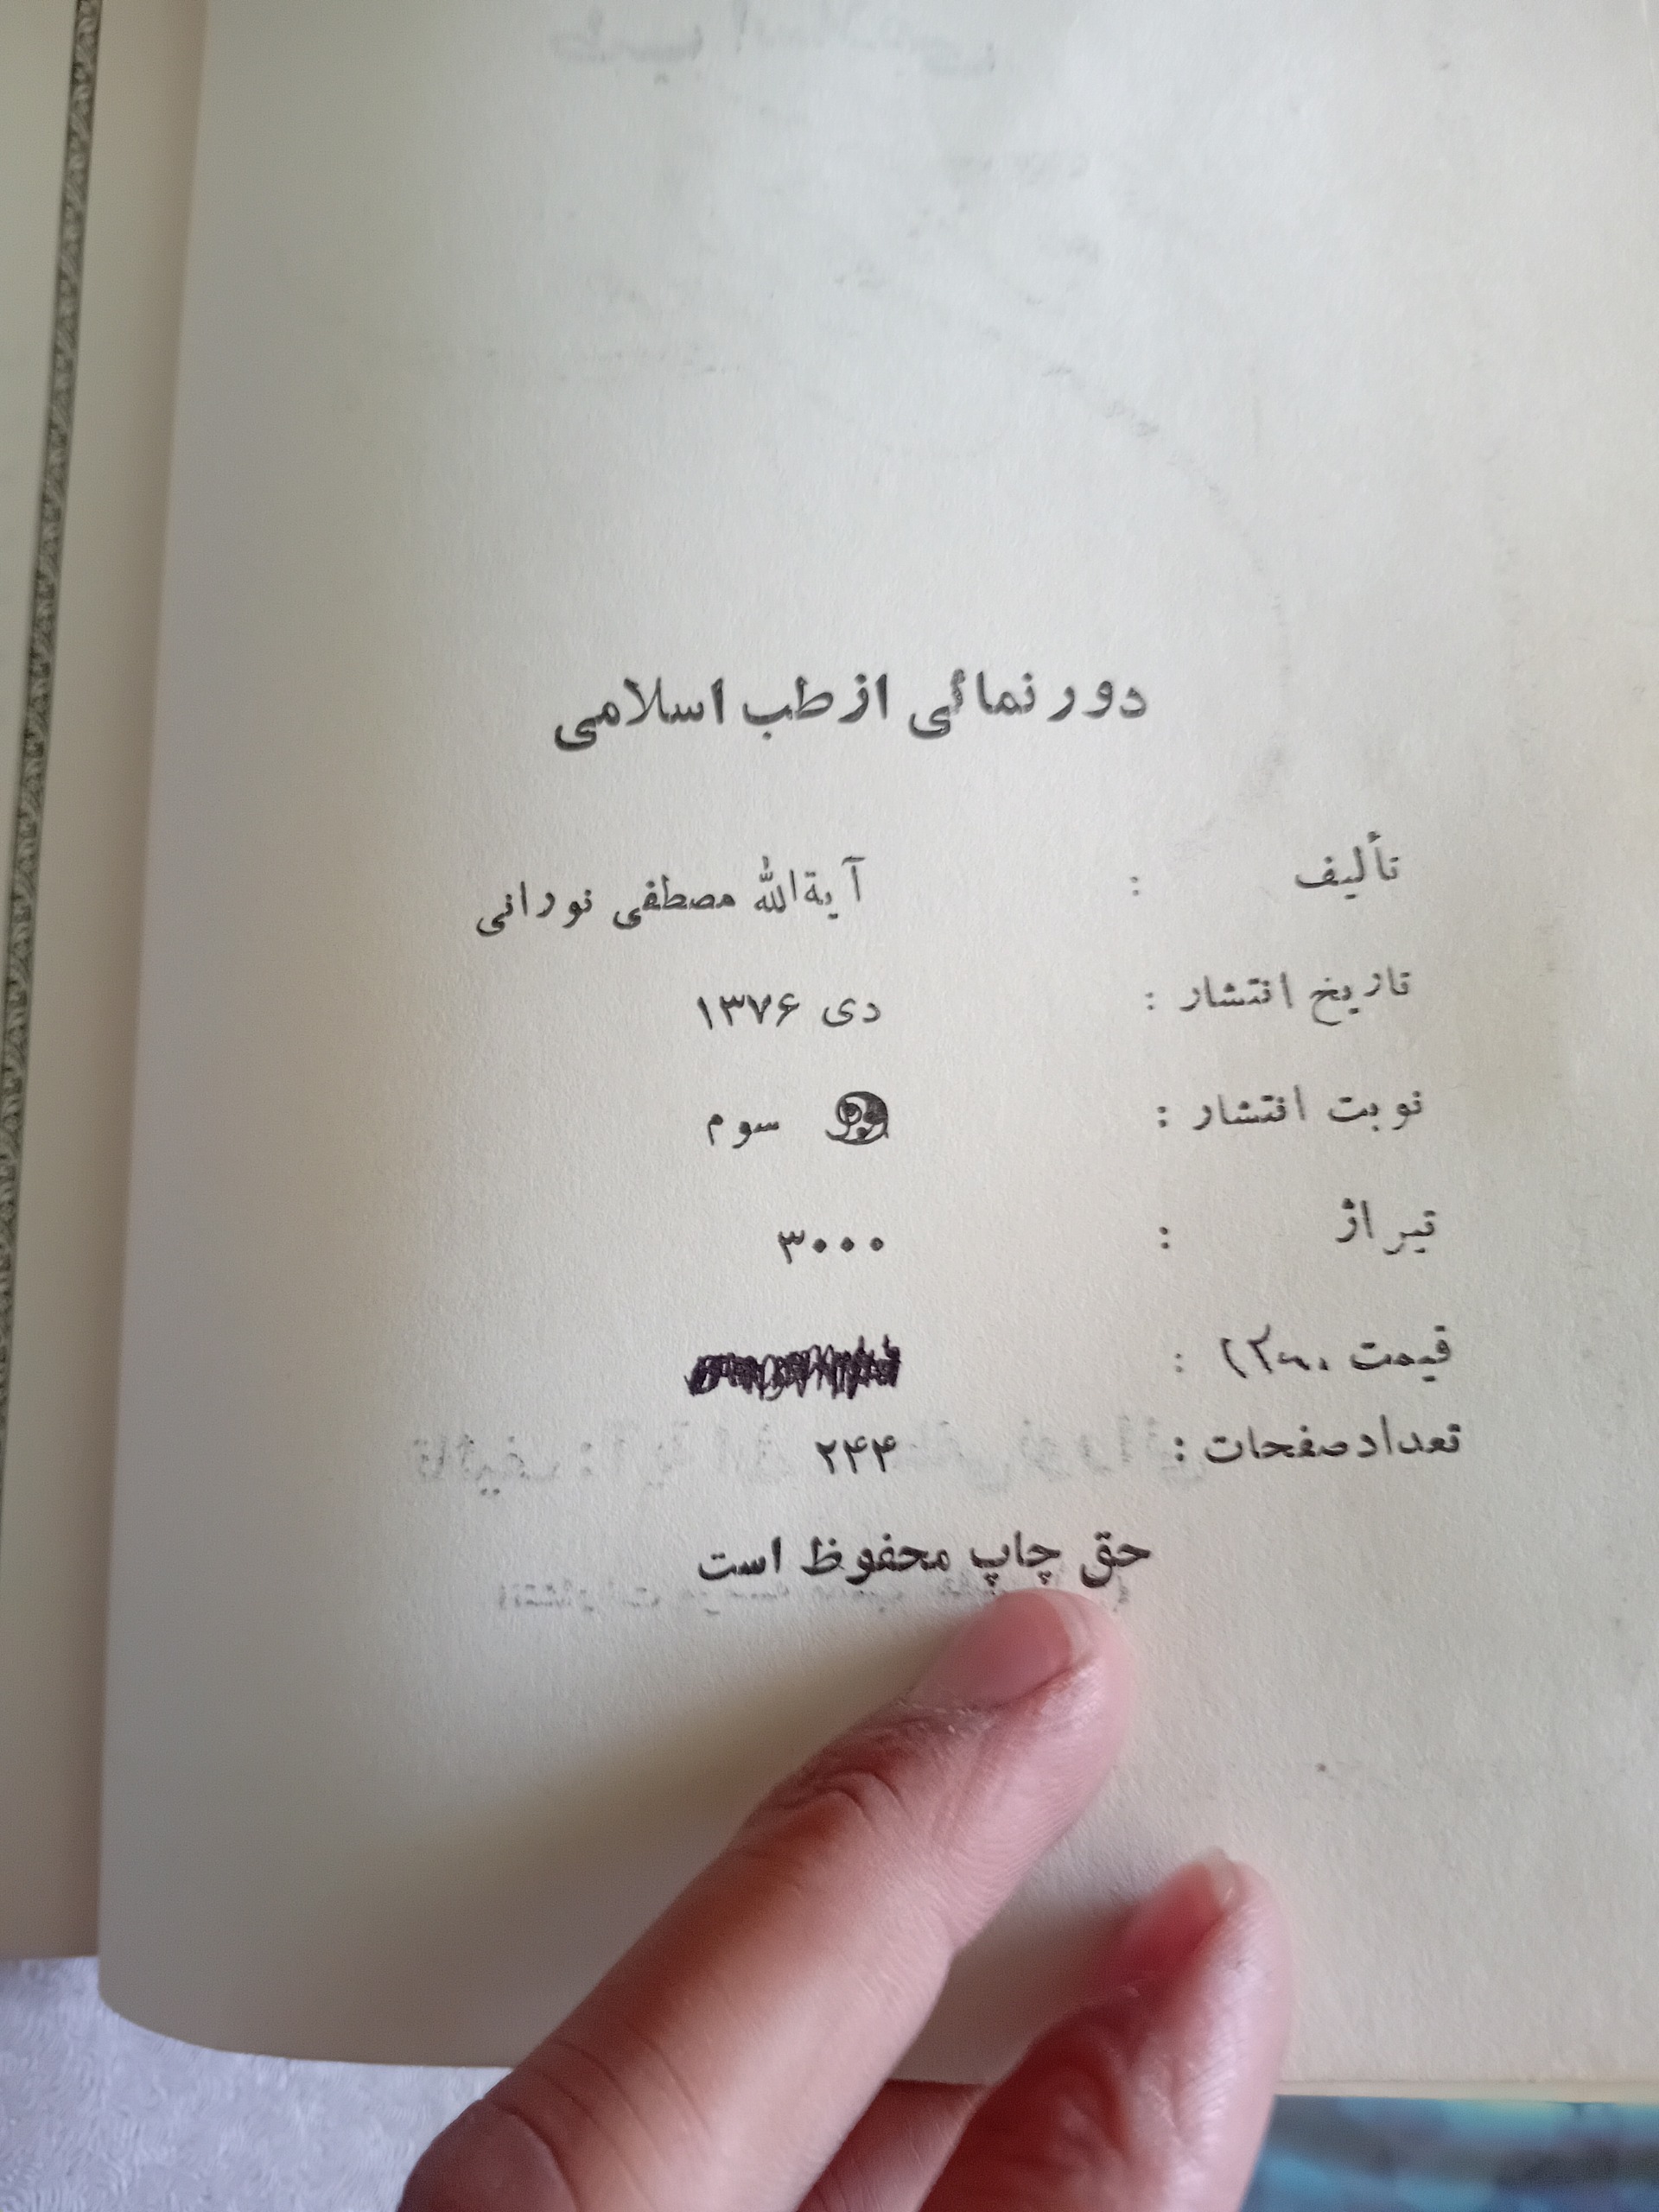 دورنمائی از طب اسلامی
تألیف : آیةالله مصطفی نورانی
تاریخ انتشار : دی ۱۳۷۶
نوبت انتشار : سوم
تیراژ : ۳۰۰۰
قیمت :
تعداد صفحات : ۲۴۴
حق چاپ محفوظ است